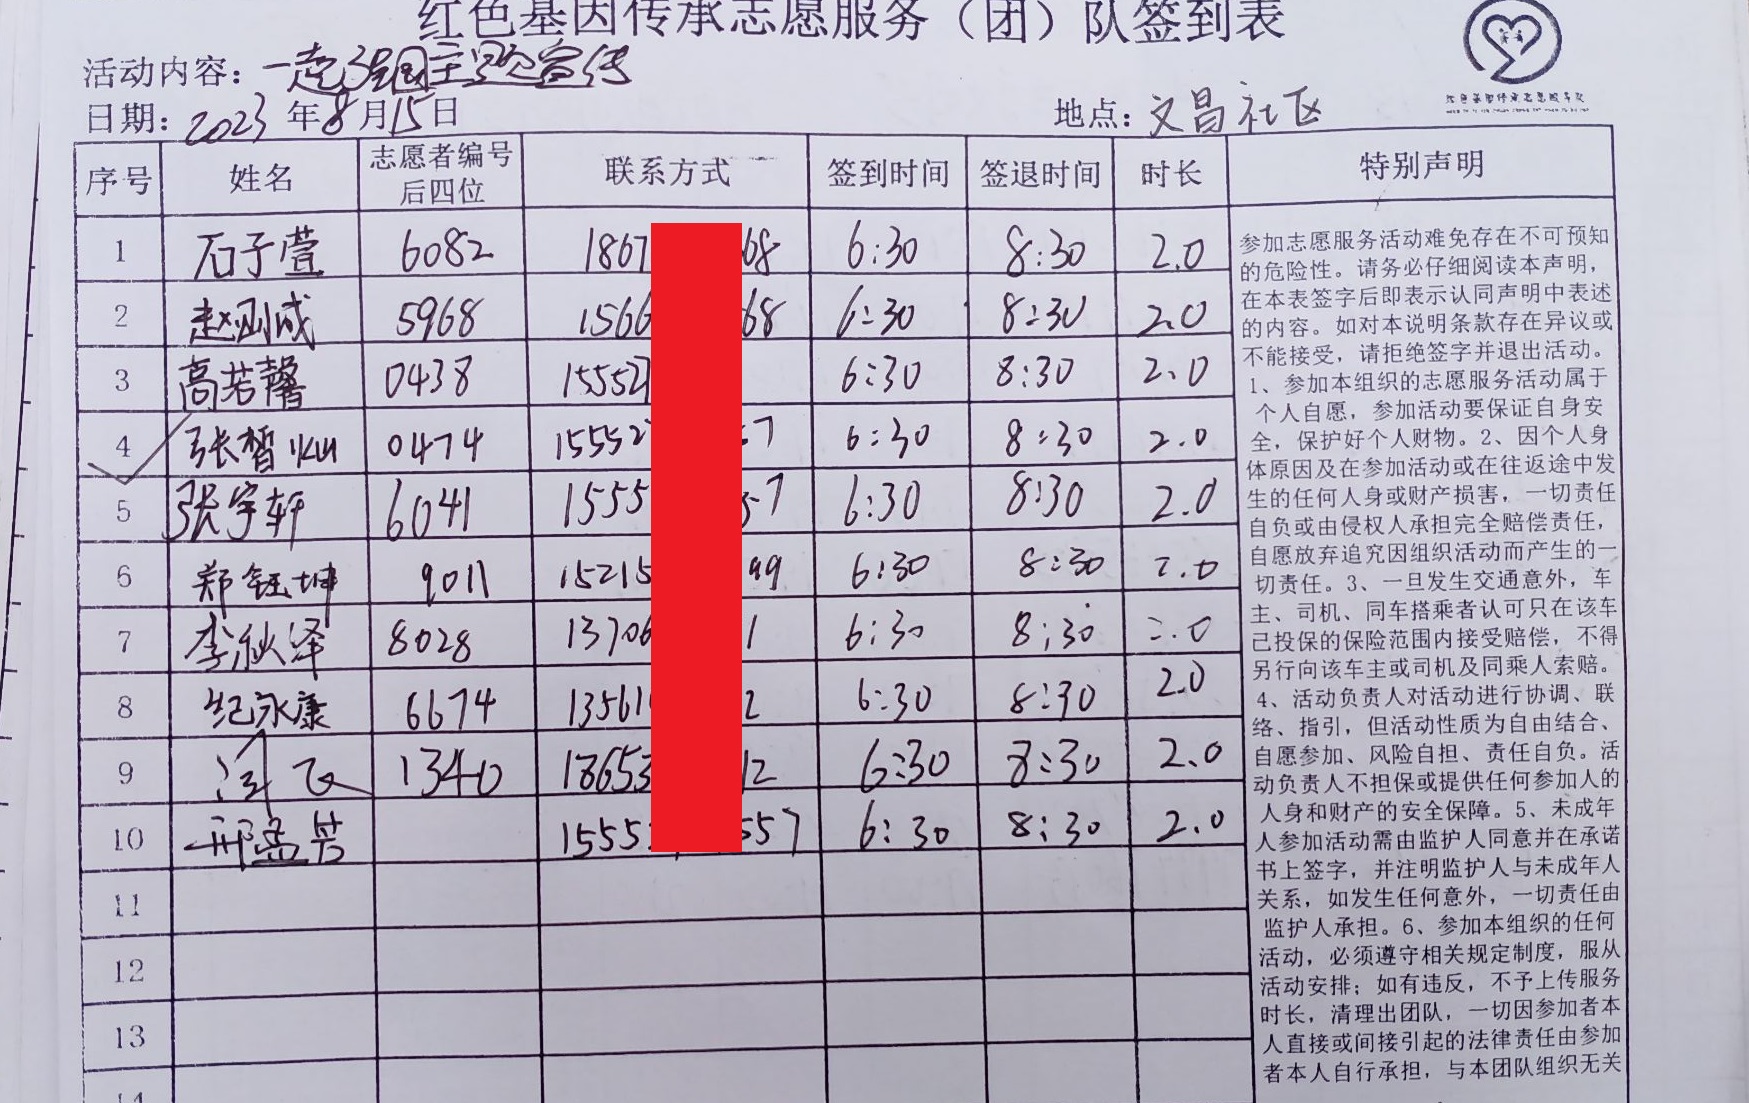 红色基因传承志愿服务（团）队签到表
活动内容：一起强国主题宣传
日期：2023年8月15日 地点：文昌社区
序号 姓名 志愿者编号后四位 联系方式 签到时间 签退时间 时长 特别声明
1 石子萱 6082 1867 68 6:30 8:30 2.0
2 赵 成 5968 1566 68 6:30 8:30 2.0
3 高若馨 0438 15552 6:30 8:30 2.0
4 张皙 0474 15552 7 6:30 8:30 2.0
5 张宇轩 6041 1555 57 6:30 8:30 2.0
6 郑钰坤 9011 15215 99 6:30 8:30 2.0
7 李秋泽 8028 13706 1 6:30 8:30 2.0
8 纪永康 6674 13561 2 6:30 8:30 2.0
9 飞 1340 18653 12 6:30 8:30 2.0
10 邢孟芳 1555 557 6:30 8:30 2.0
11
12
13
14
参加志愿服务活动难免存在不可预知
的危险性。请务必仔细阅读本声明，
在本表签字后即表示认同声明中表述
的内容。如对本说明条款存在异议或
不能接受，请拒绝签字并退出活动。
1、参加本组织的志愿服务活动属于
个人自愿，参加活动要保证自身安
全，保护好个人财物。2、因个人身
体原因及在参加活动或在往返途中发
生的任何人身或财产损害，一切责任
自负或由侵权人承担完全赔偿责任，
自愿放弃追究因组织活动而产生的一
切责任。3、一旦发生交通意外，车
主、司机、同车搭乘者认可只在该车
已投保的保险范围内接受赔偿，不得
另行向该车主或司机及同乘人索赔。
4、活动负责人对活动进行协调、联
络、指引，但活动性质为自由结合、
自愿参加、风险自担、责任自负。活
动负责人不担保或提供任何参加人的
人身和财产的安全保障。5、未成年
人参加活动需由监护人同意并在承诺
书上签字，并注明监护人与未成年人
关系，如发生任何意外，一切责任由
监护人承担。6、参加本组织的任何
活动，必须遵守相关规定制度，服从
活动安排；如有违反，不予上传服务
时长，清理出团队，一切因参加者本
人直接或间接引起的法律责任由参加
者本人自行承担，与本团队组织无关